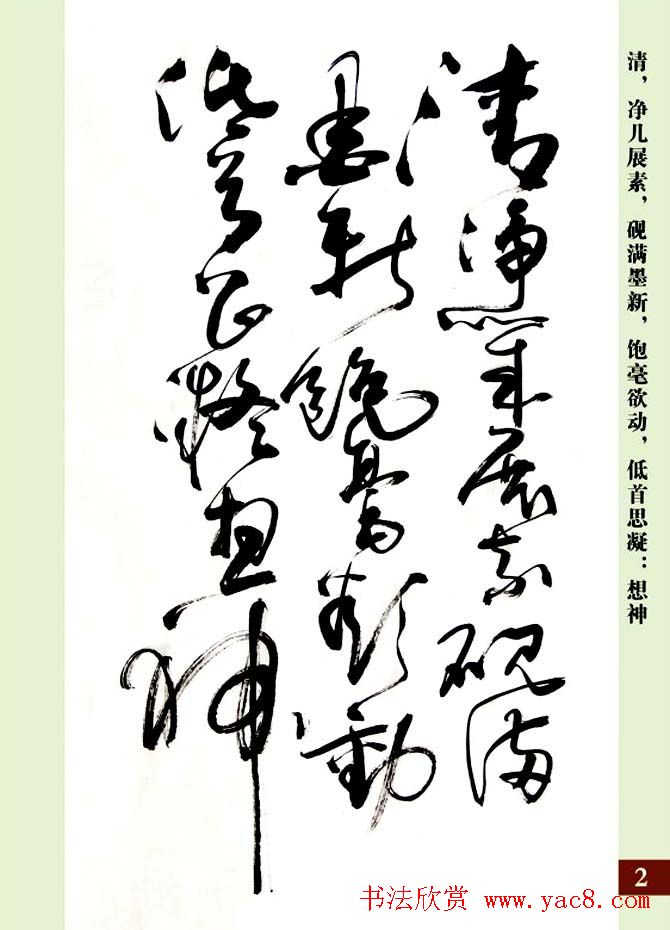 清净几展素砚满
墨新饱毫欲动
低首思凝想神
清，净几展素，砚满墨新，饱毫欲动，低首思凝：想神
2
书法欣赏 www.yac8.com